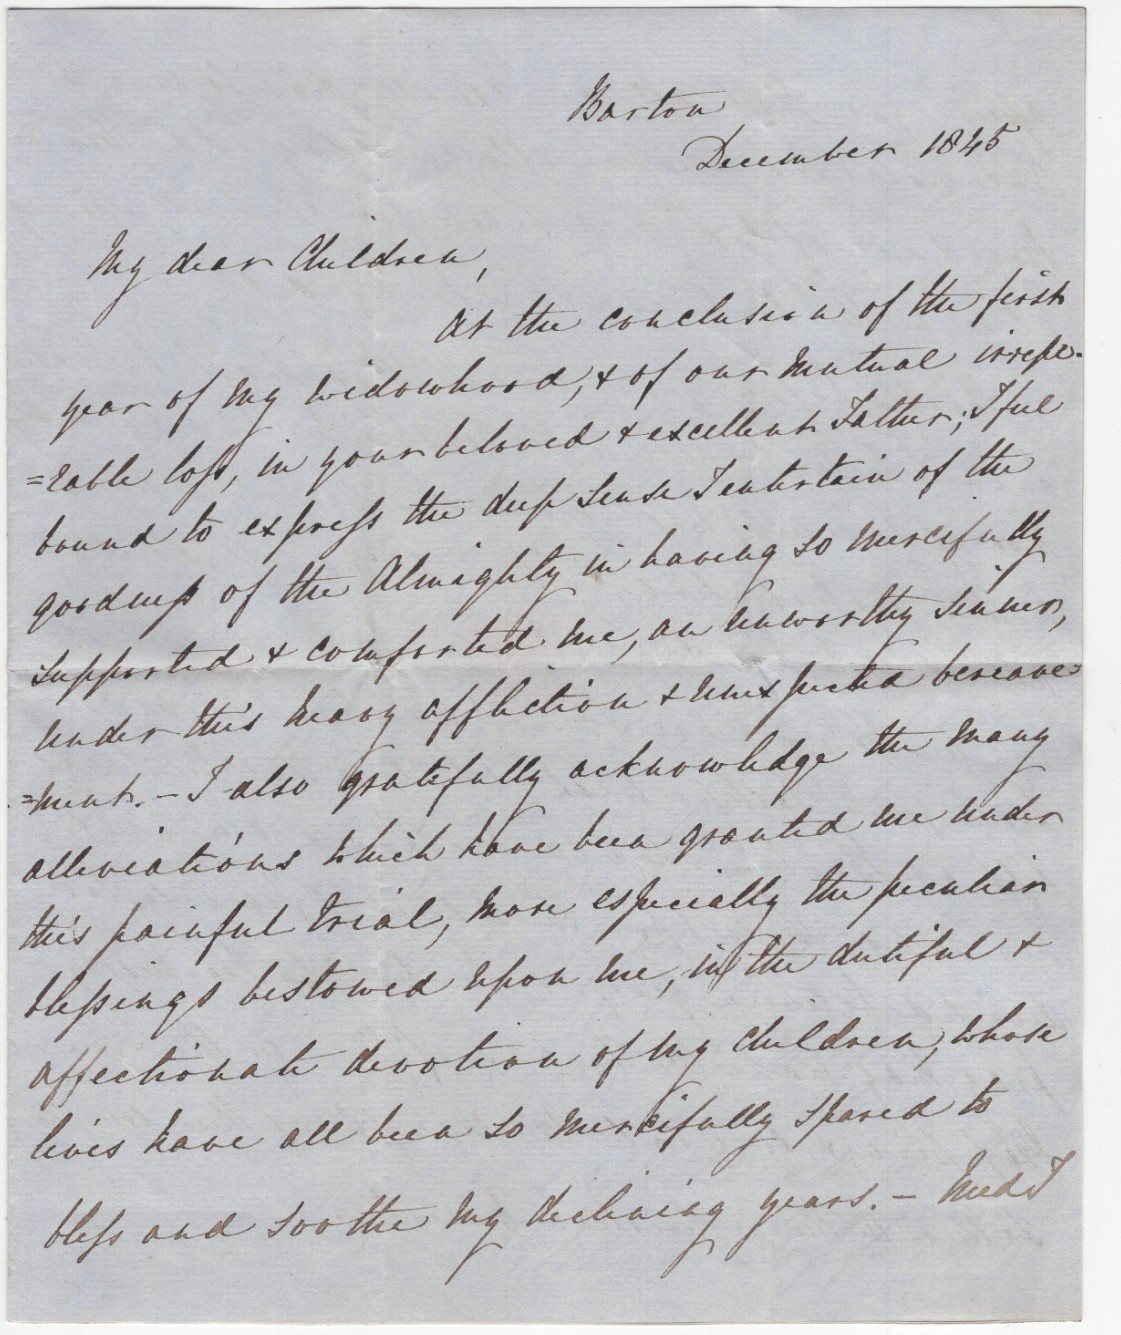 Barton
December 1845
My dear Children,
At the conclusion of the first
year of my widowhood, & of our mutual irrepe-
=rable loss, in your beloved & excellent Father; I feel
bound to express the deep sense I entertain of the
goodness of the Almighty in having so mercifully
supported & comforted me, an unworthy sinner,
under this heavy affliction & unexpected bereave=
=ment. – I also gratefully acknowledge the many
alleviations which have been granted me under
this painful trial, more especially the peculiar
blessings bestowed upon me, in the dutiful &
affectionate devotion of my Children, whose
lives have all been so mercifully spared to
bless and soothe my declining years. – Need I